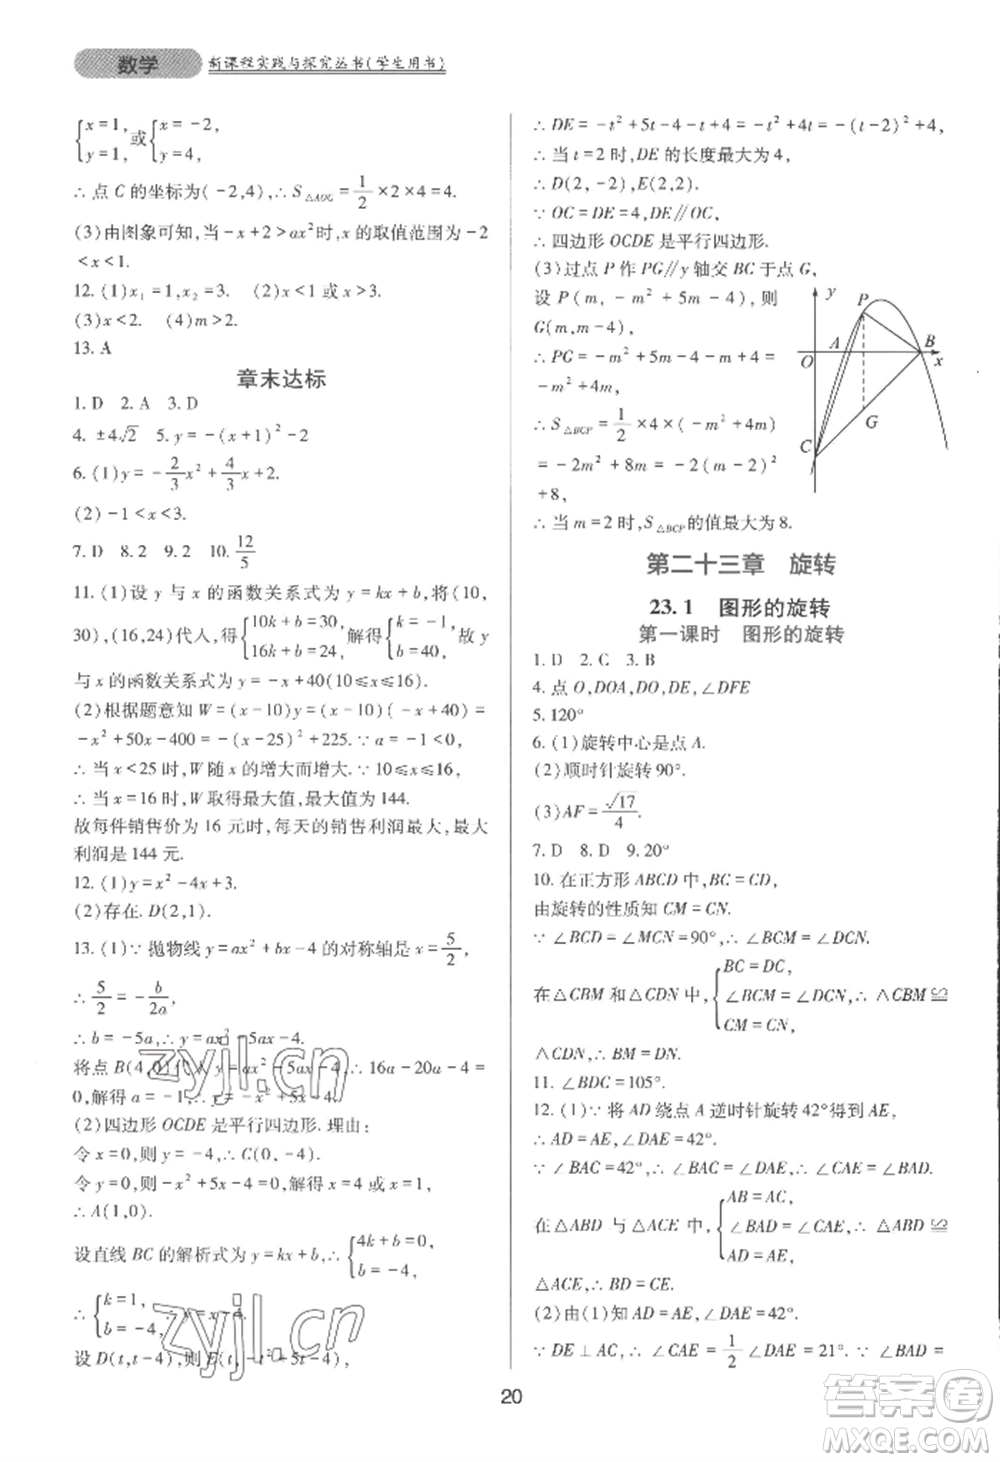 数学 新课程实践与探究丛书(学生用书)
{x=1, y=1, 或 {x=-2, y=4,
∴点 C 的坐标为(-2,4),∴S△AOC=1/2×2×4=4.
(3)由图象可知,当-x+2>ax²时,x 的取值范围为-2
<x<1.
12. (1)x₁=1,x₂=3. (2)x<1 或 x>3.
(3)x<2. (4)m>2.
13. A
章末达标
1. D 2. A 3. D
4. ±4√2 5. y=-(x+1)²-2
6. (1)y=-2/3x²+4/3x+2.
(2)-1<x<3.
7. D 8. 2 9. 2 10. 12/5
11. (1)设 y 与 x 的函数关系式为 y=kx+b,将(10,
30),(16,24)代人,得{10k+b=30, 16k+b=24, 解得{k=-1, b=40, 故 y
与 x 的函数关系式为 y=-x+40(10≤x≤16).
(2)根据题意知 W=(x-10)y=(x-10)(-x+40)=
-x²+50x-400=-(x-25)²+225.∵a=-1<0,
∴当 x<25 时,W 随 x 的增大而增大.∵10≤x≤16,
∴当 x=16 时,W 取得最大值,最大值为 144.
故每件销售价为 16 元时,每天的销售利润最大,最大
利润是 144 元.
12. (1)y=x²-4x+3.
(2)存在. D(2,1).
13. (1)∵抛物线 y=ax²+bx-4 的对称轴是 x=5/2,
∴5/2=-b/2a,
∴b=-5a,∴y=ax²-5ax-4.
将点 B(4,0)代入 y=ax²-5ax-4,∴16a-20a-4=
0,解得 a=-1,∴y=-x²+5x-4.
(2)四边形 OCDE 是平行四边形. 理由:
令 x=0,则 y=-4,∴C(0,-4).
令 y=0,则-x²+5x-4=0,解得 x=4 或 x=1,
∴A(1,0).
设直线 BC 的解析式为 y=kx+b,∴{4k+b=0, b=-4,
∴{k=1, b=-4, ∴y=x-4.
设 D(t,t-4),则 E(t,-t²+5t-4),
∴DE=-t²+5t-4-t+4=-t²+4t=-(t-2)²+4,
∴当 t=2 时,DE 的长度最大为 4,
∴D(2,-2),E(2,2).
∵OC=DE=4,DE∥OC,
∴四边形 OCDE 是平行四边形.
(3)过点 P 作 PG∥y 轴交 BC 于点 G,
设 P(m,-m²+5m-4),则
G(m,m-4),
∴PG=-m²+5m-4-m+4=
-m²+4m,
∴S△BCP=1/2×4×(-m²+4m)
=-2m²+8m=-2(m-2)²
+8,
∴当 m=2 时,S△BCP的值最大为 8.
y P A B O x G C
第二十三章 旋转
23.1 图形的旋转
第一课时 图形的旋转
1. D 2. C 3. B
4. 点 O,DOA,DO,DE,∠DFE
5. 120°
6. (1)旋转中心是点 A.
(2)顺时针旋转 90°.
(3)AF=√17/4.
7. D 8. D 9. 20°
10. 在正方形 ABCD 中,BC=CD,
由旋转的性质知 CM=CN.
∵∠BCD=∠MCN=90°,∴∠BCM=∠DCN.
在△CBM 和△CDN 中,{BC=DC, ∠BCM=∠DCN, CM=CN, ∴△CBM≌
△CDN,∴BM=DN.
11. ∠BDC=105°.
12. (1)∵将 AD 绕点 A 逆时针旋转 42°得到 AE,
∴AD=AE,∠DAE=42°.
∵∠BAC=42°,∴∠BAC=∠DAE,∴∠CAE=∠BAD.
在△ABD 与△ACE 中,{AB=AC, ∠BAD=∠CAE, AD=AE, ∴△ABD≌
△ACE,∴BD=CE.
(2)由(1)知 AD=AE,∠DAE=42°.
∵DE⊥AC,∴∠CAE=1/2∠DAE=21°.∵∠BAD=
20
zyjl.cn
zyjl.cn
答案卷
MXQE.COM